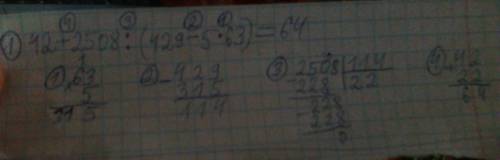 ④ ③ ② ①
① 42+2508:(429-5·63)=64
① ×63 ② -429 ③ -2508|114 ④ +42
5 315 228 |22 22
315 114 -228 64
228
0